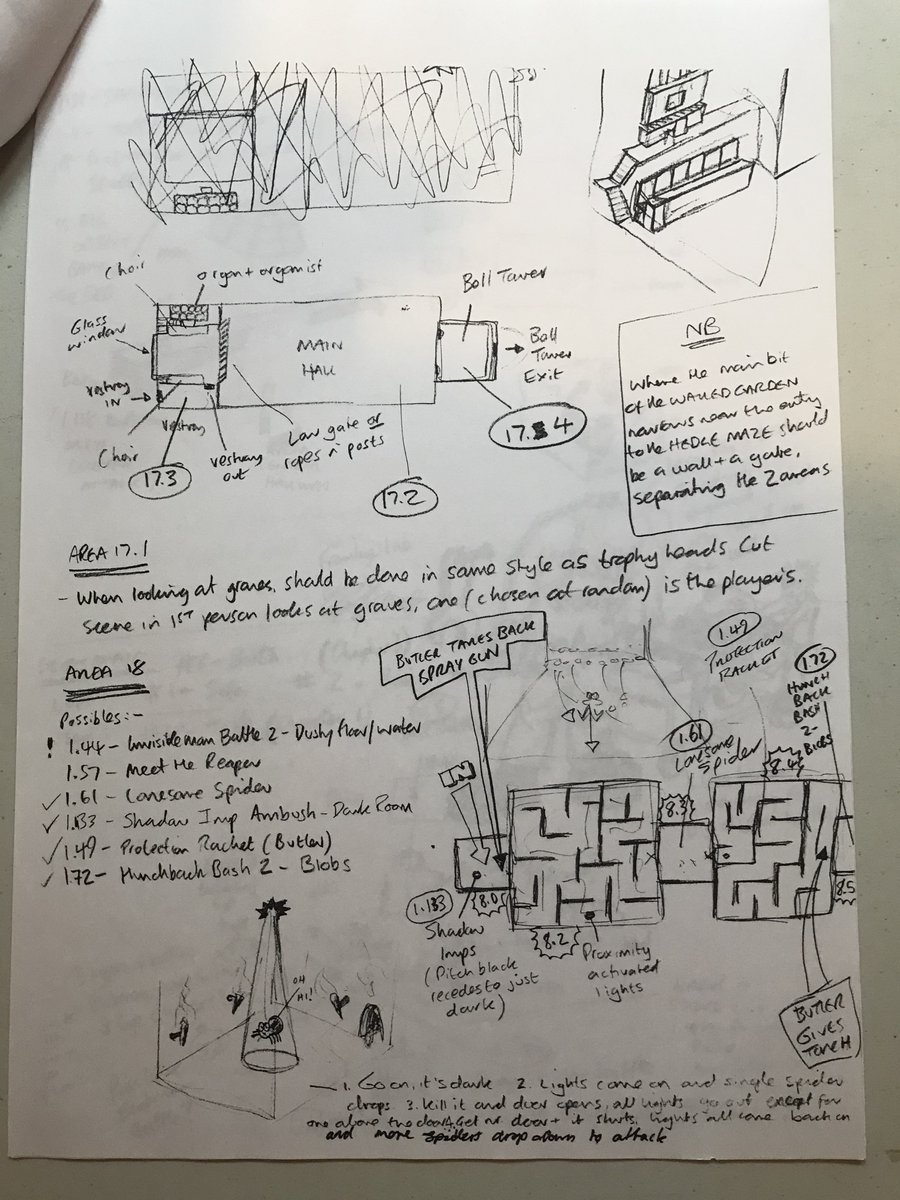 Choir
organ + organist
Glass
window
vestray
IN
Choir
vestray
17.3
vestray
out
Low gate or
ropes n posts
MAIN
HALL
17.2
Bell Tower
Bell
Tower
Exit
17.4
NB
Where the main bit
of the WALLED GARDEN
narrows near the entry
to the HEDGE MAZE should
be a wall + a gate,
separating the 2 areas
AREA 17.1
- When looking at graves, should be done in same style as trophy heads cut
scene in 1ST person looks at graves, one (chosen at random) is the player's.
AREA 18
Possibles:-
! 1.44 - Invisible man Battle 2 - Dusty floor/water
1.57 - Meet the Reaper
✓ 1.61 - Lonesome Spider
✓ 1.133 - Shadow Imp Ambush - Dark Room
✓ 1.49 - Protection Racket (Butler)
✓ 1.72 - Hunchback Bash 2 - Blobs
BUTLER TAKES BACK
SPRAY GUN
1.49
PROTECTION
RACKET
1.72
HUNCH
BACK
BASH
2-
BLOBS
1.61
Lonesome
Spider
IN
8.3
8.4
8.5
8.2
1.133
Shadow
Imps
(Pitch black
recedes to just
dark)
Proximity
activated
lights
BUTLER
GIVES
TORCH
OH
HI!
1. Go on, it's dark 2. Lights come on and single spider
drops. 3. Kill it and door opens, all lights go out except for
one above the door. 4. Get nr door + it shuts, lights all come back on
and more spiders drop down to attack